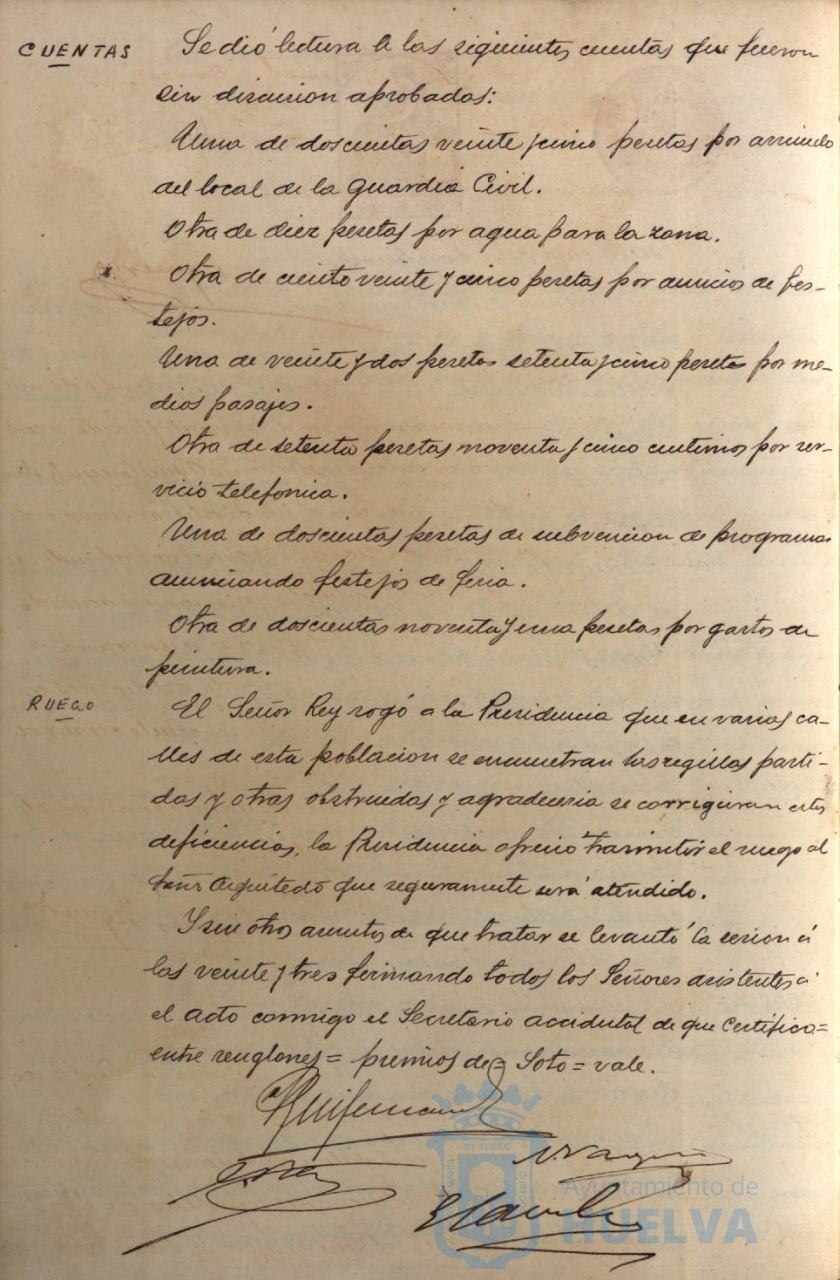 CUENTAS
Se dió lectura a las siguientes cuentas que fueron
sin discusion aprobadas:
Una de doscientas veinte y cinco pesetas por arriendo
del local de la Guardia Civil.
Otra de diez pesetas por agua para la zona.
Otra de ciento veinte y cinco pesetas por anuncios de fes-
tejos.
Una de veinte y dos pesetas setenta y cinco pesetas por me-
dios pasajes.
Otra de setenta pesetas noventa y cinco centimos por ser-
vicio telefonica.
Una de doscientas pesetas de subvencion de programas
anunciando festejos de feria.
Otra de doscientas noventa y una pesetas por gastos de
pintura.
RUEGO
El Señor Rey rogó a la Presidencia que en varias ca-
lles de esta poblacion se encuentran las regillas parti-
das y otras obstruidas y agradeceria se corrigieran estas
deficiencias, la Presidencia ofrecio trasmitir el ruego al
Señor Arquitecto que seguramente será atendido.
Y sin otros asuntos de que tratar se levantó la sesion á
las veinte y tres firmando todos los Señores asistentes a
el acto conmigo el Secretario accidental de que certifico=
entre renglones = premios de = Soto = vale.
Ayuntamiento de
HUELVA